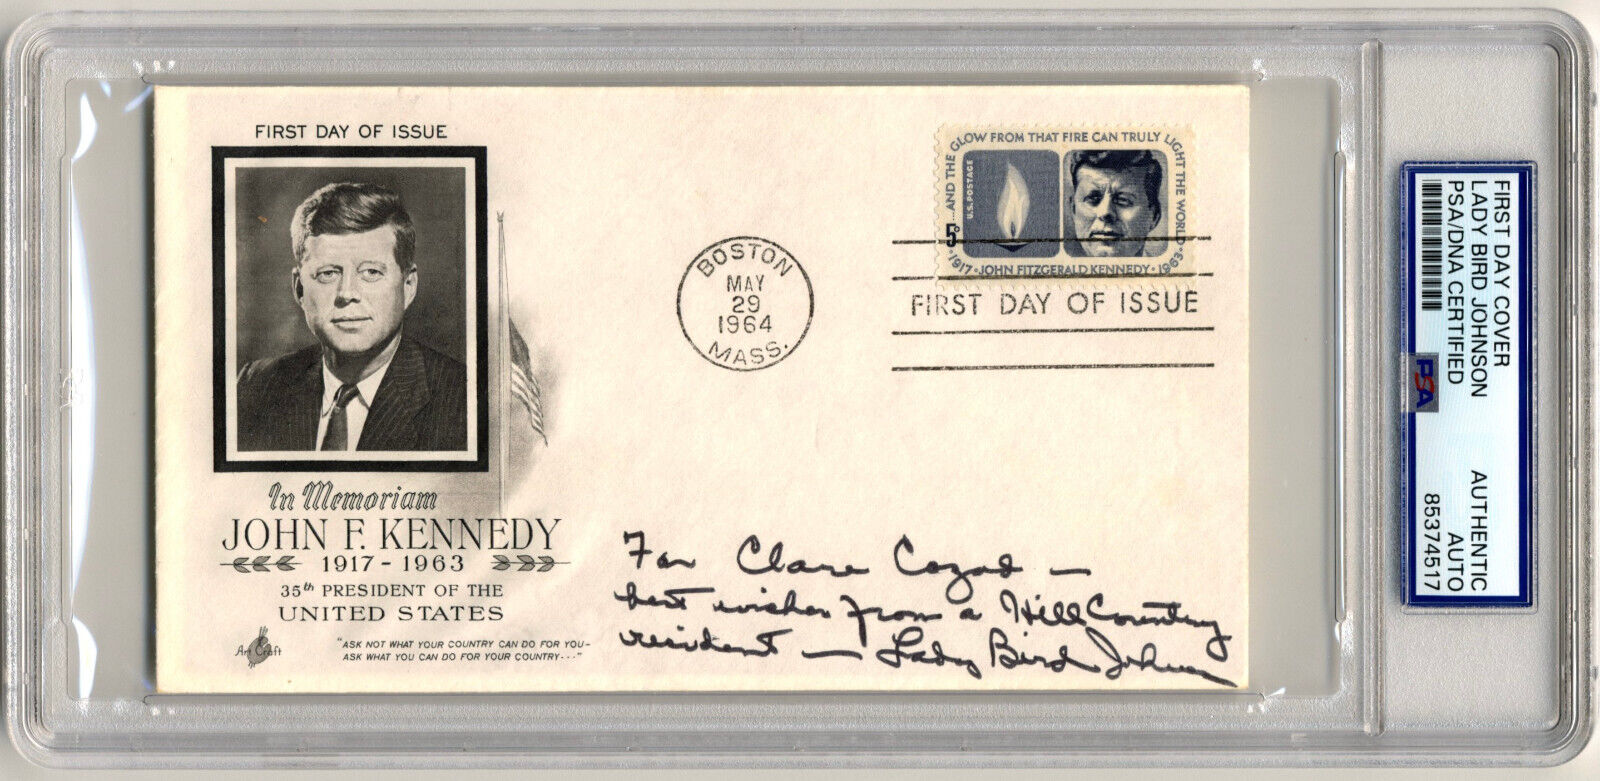 FIRST DAY OF ISSUE
In Memoriam
JOHN F. KENNEDY
1917 - 1963
35th PRESIDENT OF THE
UNITED STATES
"ASK NOT WHAT YOUR COUNTRY CAN DO FOR YOU-
ASK WHAT YOU CAN DO FOR YOUR COUNTRY---"
Art Craft
BOSTON
MAY
29
1964
MASS.
...AND THE GLOW FROM THAT FIRE CAN TRULY LIGHT THE WORLD
U.S. POSTAGE
5¢
1917·JOHN FITZGERALD KENNEDY·1963
FIRST DAY OF ISSUE
For Clare Cozad —
best wishes from a Hill Country
resident — Lady Bird Johnson
FIRST DAY COVER
LADY BIRD JOHNSON
PSA/DNA CERTIFIED
PSA
AUTHENTIC
AUTO
85374517